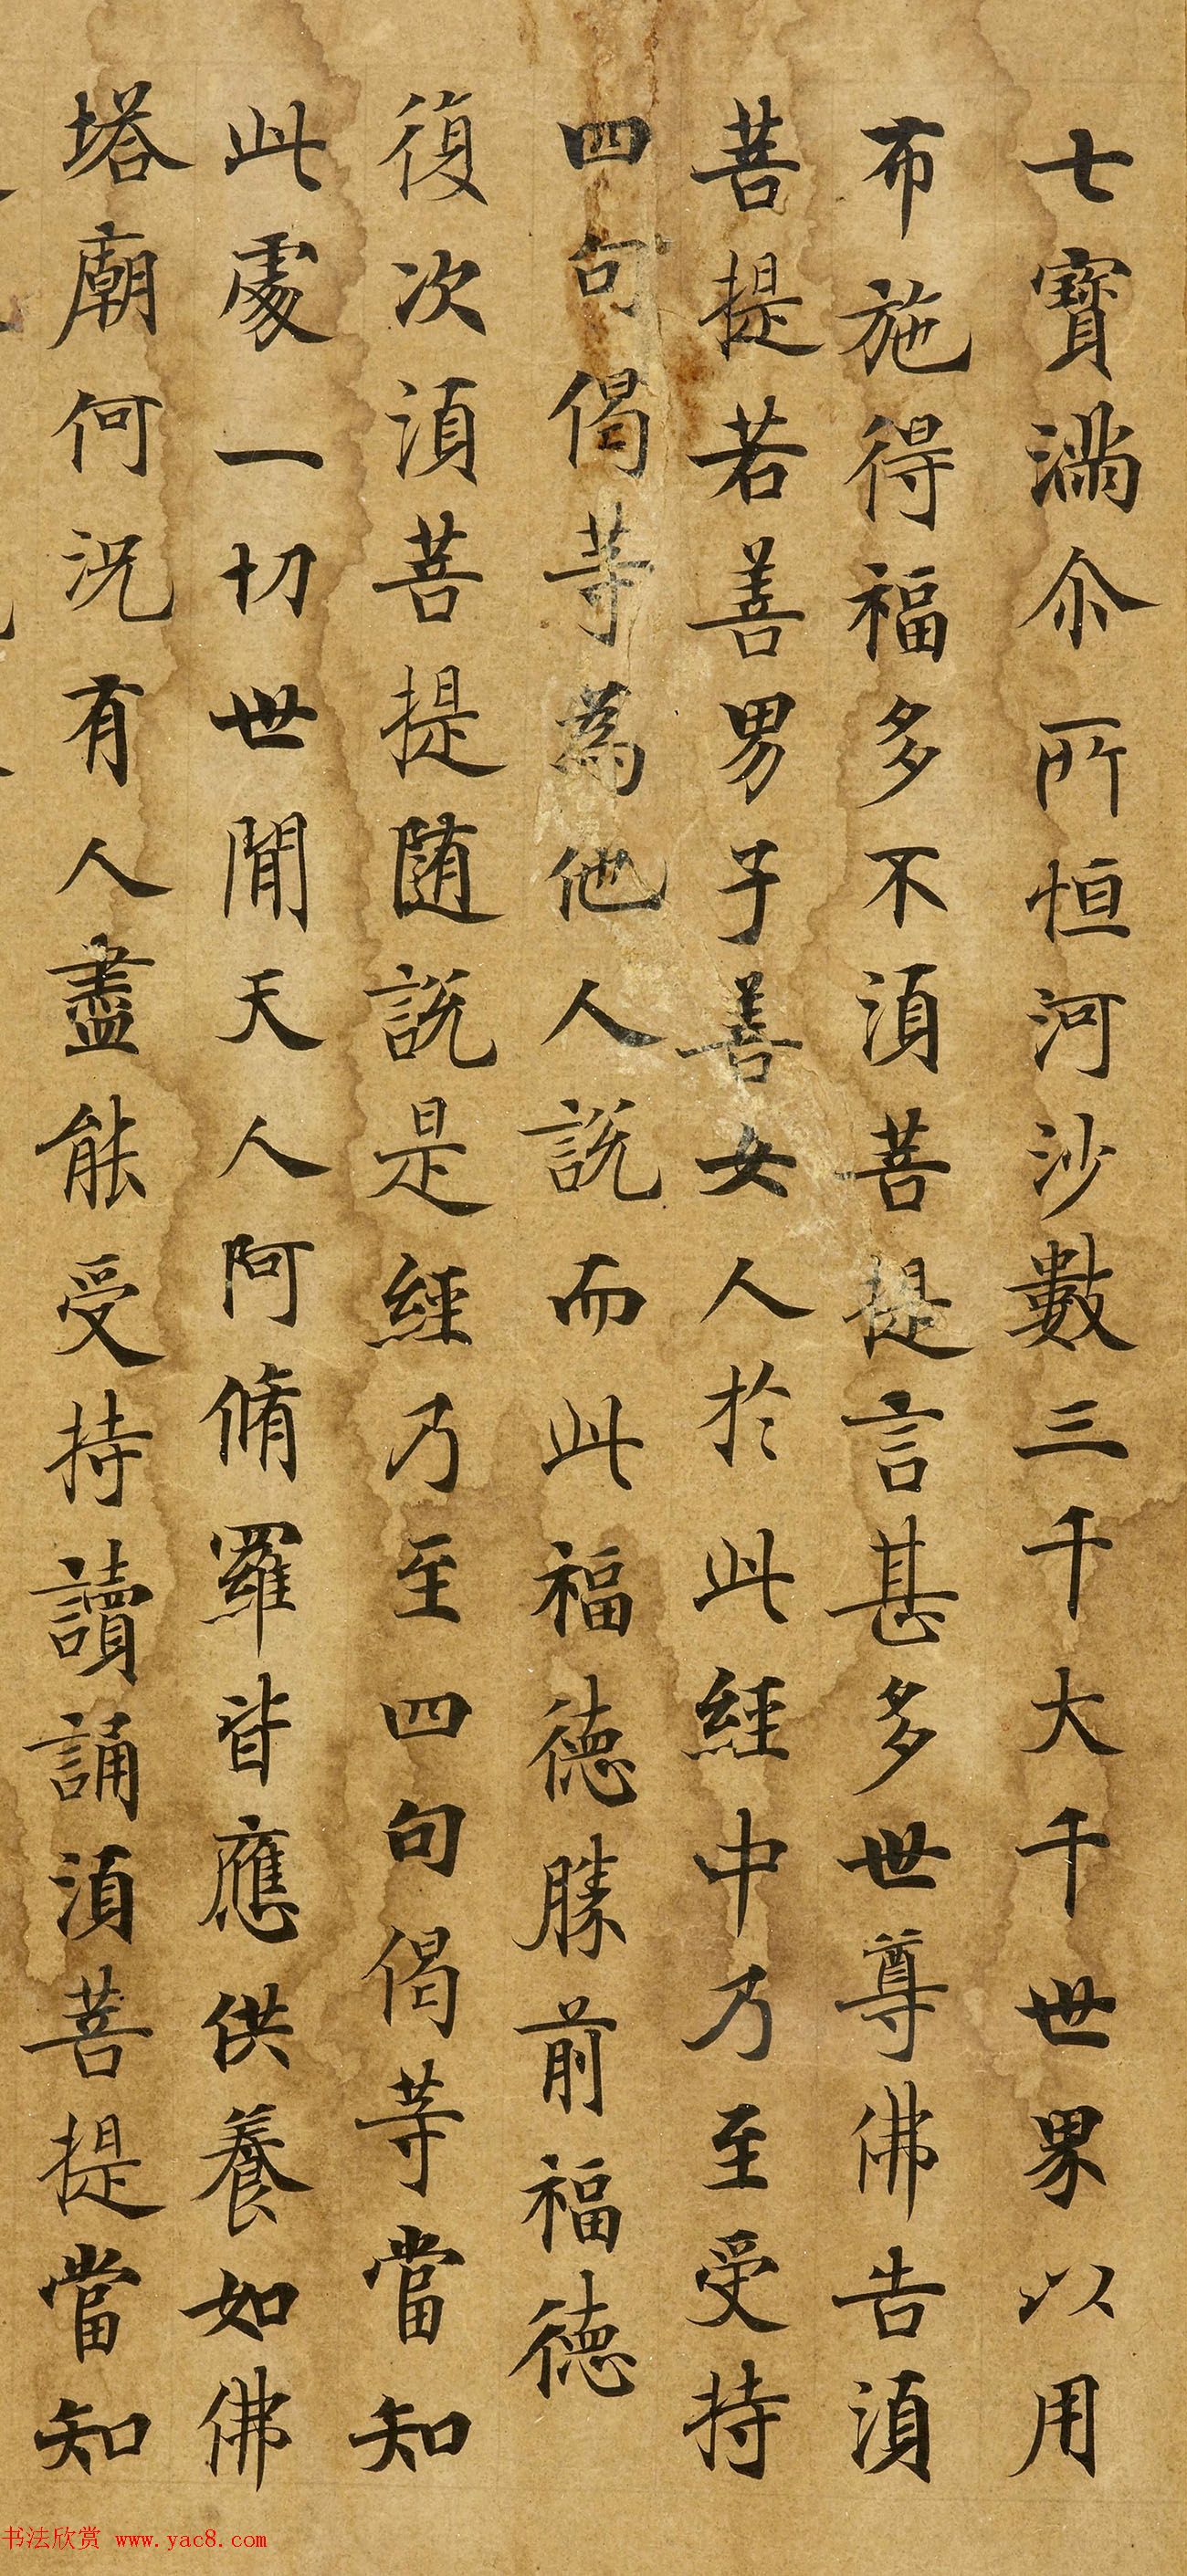 七寶滿尒所恒河沙數三千大千世界以用
布施得福多不須菩提言甚多世尊佛告須
菩提若善男子善女人於此經中乃至受持
四句偈等為他人說而此福德勝前福德
復次須菩提随說是經乃至四句偈等當知
此處一切世間天人阿脩羅皆應供養如佛
塔廟何況有人盡能受持讀誦須菩提當知
书法欣赏 www.yac8.com